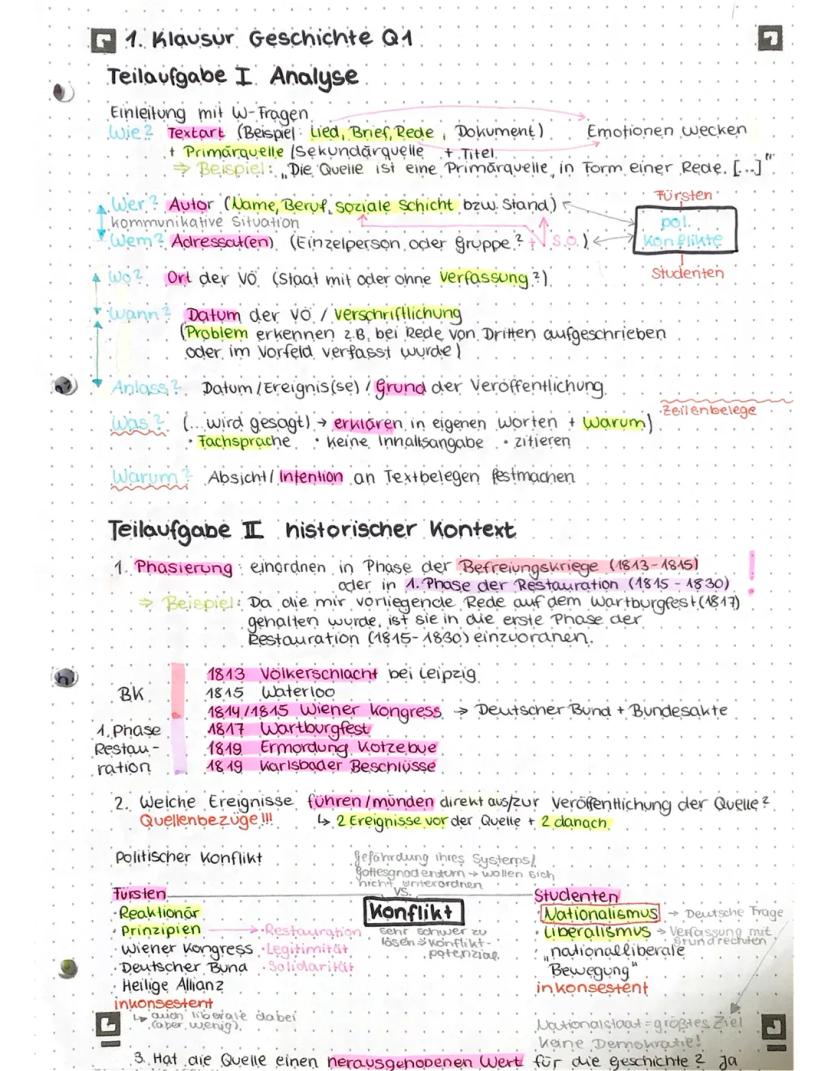 1. Klausur Geschichte Q1
Teilaufgabe I Analyse
Einleitung mit W-Fragen
Wie? Textart (Beispiel: Lied, Brief, Rede, Dokument) Emotionen wecken
+ Primärquelle/Sekundärquelle + Titel
⇒ Beispiel: „Die Quelle ist eine Primärquelle, in Form einer Rede. [...]"
Wer? Autor (Name, Beruf, soziale Schicht bzw. Stand)
kommunikative Situation
Wem? Adressat(en) (Einzelperson oder Gruppe? + s.o.)
Fürsten
pol. Konflikte
Studenten
Wo? Ort der VÖ (Staat mit oder ohne Verfassung?)
Wann? Datum der VÖ / Verschriftlichung
(Problem erkennen z.B. bei Rede von Dritten aufgeschrieben
oder im Vorfeld verfasst wurde)
Anlass? Datum/Ereignis(se) / Grund der Veröffentlichung
Zeilenbelege
Was? (... wird gesagt) → erklären in eigenen Worten + Warum)
· Fachsprache · keine Inhaltsangabe · zitieren
Warum? Absicht/Intention an Textbelegen festmachen
Teilaufgabe II historischer Kontext
1. Phasierung: einordnen in Phase der Befreiungskriege (1813-1815)
oder in 1. Phase der Restauration (1815 - 1830) !
⇒ Beispiel: Da die mir vorliegende Rede auf dem Wartburgfest (1817)
gehalten wurde, ist sie in die erste Phase der
Restauration (1815-1830) einzuordnen.
1813 Völkerschlacht bei Leipzig
BK 1815 Waterloo
1814/1815 Wiener Kongress → Deutscher Bund + Bundesakte
1. Phase 1817 Wartburgfest
Restau- 1819 Ermordung Kotzebue
ration 1819 Karlsbader Beschlüsse
2. Welche Ereignisse führen/münden direkt aus/zur Veröffentlichung der Quelle?
Quellenbezüge!!! ↳ 2 Ereignisse vor der Quelle + 2 danach
Politischer Konflikt
Gefährdung ihres Systems/
Gottesgnadentum → wollen sich
nicht unterordnen
Fürsten vs. Studenten
· Reaktionär Konflikt · Nationalismus → Deutsche Frage
· Prinzipien → · Restauration sehr schwer zu · Liberalismus → Verfassung mit
· Wiener Kongress · Legitimität lösen → Konflikt- Grundrechten
· Deutscher Bund · Solidarität potenzial „nationalliberale
· Heilige Allianz Bewegung"
inkonsestent inkonsestent
↳ auch liberale dabei
(aber wenig)
Nationalstaat = größtes Ziel
Keine Demokratie!
3. Hat die Quelle einen herausgehobenen Wert für die Geschichte? Ja